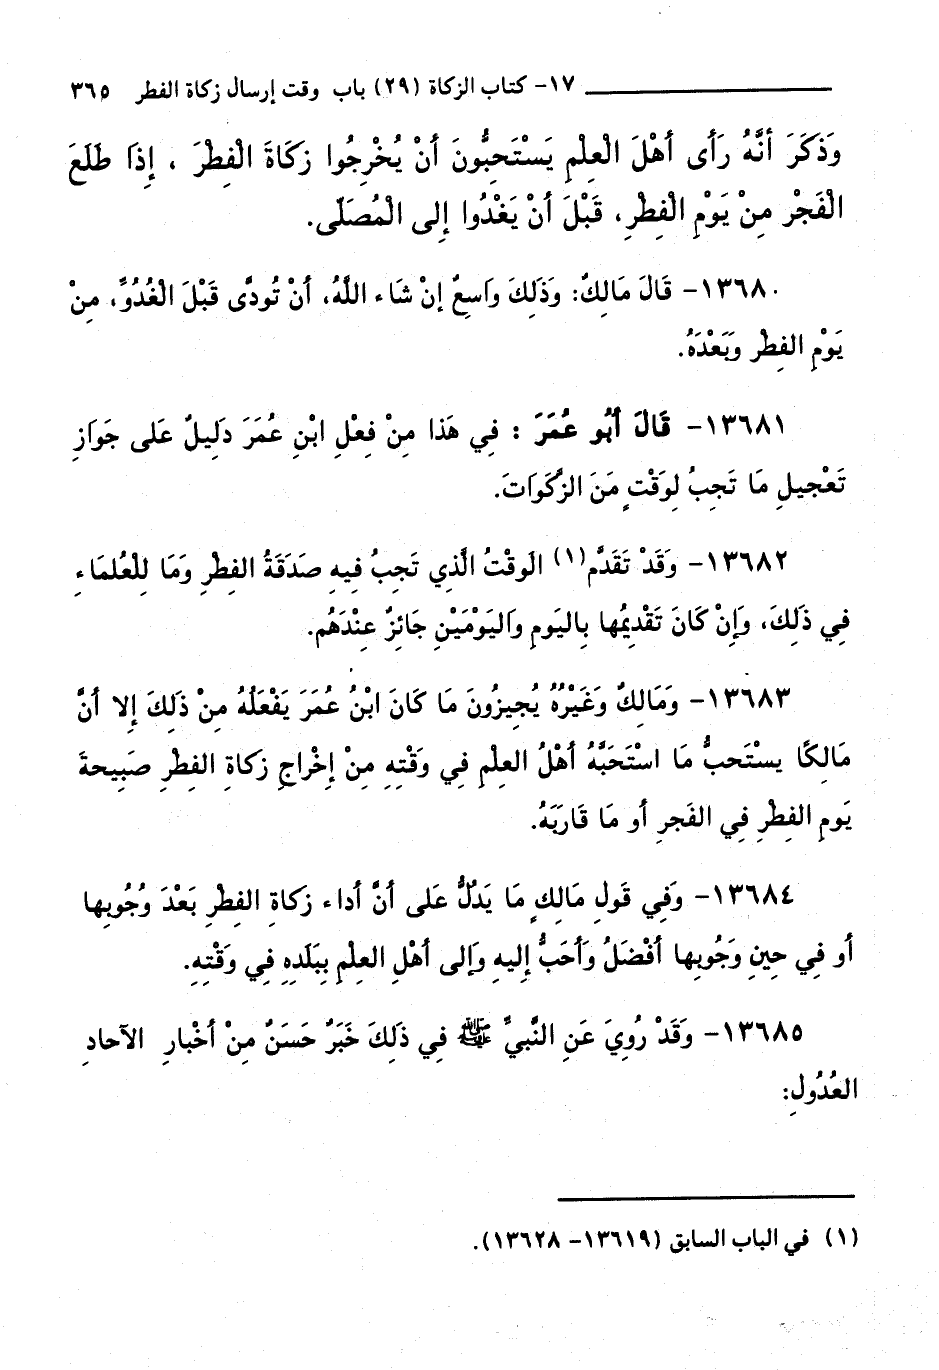 ١٧- كتاب الزكاة (٢٩) باب وقت إرسال زكاة الفطر ٣٦٥
وَذَكَرَ أنَّهُ رَأى أهْلَ الْعِلْمِ يَسْتَحِبُّونَ أنْ يُخْرِجُوا زَكَاةَ الْفِطْرَ ، إِذَا طَلَعَ
الْفَجْرِ مِنْ يَوْمِ الْفِطْرِ، قَبْلَ أنْ يَغْدُوا إِلى الْمُصَلَّى.
١٣٦٨٠- قَالَ مَالِكٌ: وَذَلِكَ وَاسِعٌ إِنْ شَاء اللَّهُ، أنْ تُودَّى قَبْلَ الْغُدُوِّ، مِنْ
يَوْمِ الفِطْرِ وَبَعْدَهُ.
١٣٦٨١- قَالَ أَبُو عُمَرَ : فِي هَذَا مِنْ فِعْلِ ابْنِ عُمَرَ دَلِيلٌ عَلى جَوَازِ
تَعْجيلِ مَا تَجِبُ لِوَقْتٍ مَنَ الزَّكَوَاتَ.
١٣٦٨٢- وَقَدْ تَقَدَّم(١) الوَقْتُ الَّذِي تَجِبُ فِيهِ صَدَقَةُ الفِطْرِ وَمَا لِلْعُلمَاءِ
فِي ذَلِكَ، وَإِنْ كَانَ تَقْدِيمُها بِاليَومِ وَاليَوْمَيْنِ جَائِزٌ عِنْدَهُم.
١٣٦٨٣- وَمَالِكٌ وَغَيْرُهُ يُجِيزُونَ مَا كَانَ ابْنُ عُمَرَ يَفْعَلُهُ مِنْ ذَلِكَ إِلا أنَّ
مَالِكًا يسْتَحبُّ مَا اسْتَحَبَّهُ أهْلُ العِلْمِ فِي وَقْتِهِ مِنْ إِخْرَاجِ زكَاةِ الفِطْرِ صَبِيحةَ
يَومِ الفِطْرِ فِي الفَجرِ أو مَا قَارَبَهُ.
١٣٦٨٤- وَفِي قَولِ مَالِكٍ مَا يَدُلُّ عَلى أنَّ أداء زكَاةِ الفِطْرِ بَعْدَ وُجُوبِها
أو فِي حِينِ وَجُوبِها أفْضَلُ وَأحَبُّ إِليهِ وَإلى أهْلِ العِلْمِ بِبَلَدِهِ فِي وَقْتِهِ.
١٣٦٨٥- وَقَدْ رُوِيَ عَنِ النَّبِيِّ ﷺ فِي ذَلِكَ خَبَرٌ حَسَنٌ مِنْ أخْبارِ الآحادِ
العُدُولِ:
(١) في الباب السابق (١٣٦١٩- ١٣٦٢٨).